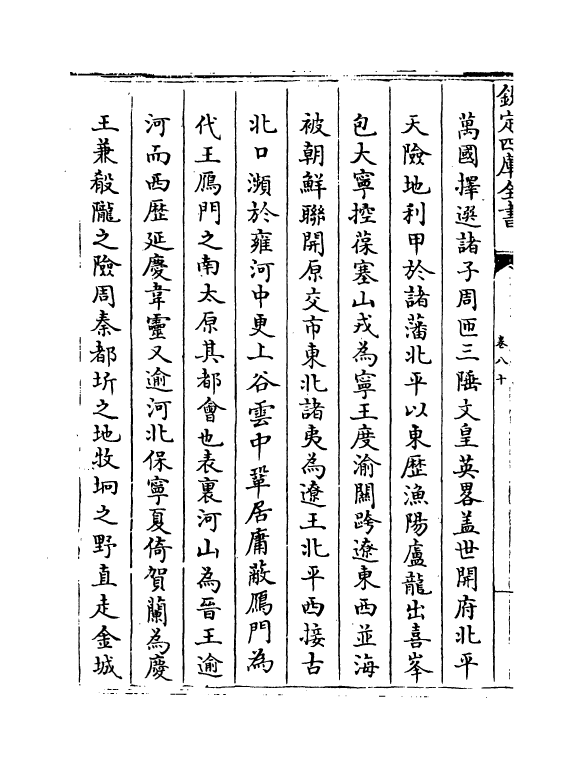 欽定四庫全書
卷八十
萬國擇選諸子周匝三陲文皇英畧盖世開府北平
天險地利甲於諸藩北平以東歴漁陽盧龍出喜峯
包大寧控葆塞山戎為寧王度渝關跨遼東西並海
被朝鮮聯開原交市東北諸夷為遼王北平西接古
北口瀕於雍河中更上谷雲中鞏居庸蔽鴈門為
代王鴈門之南太原其都㑹也表裏河山為晉王逾
河而西歴延慶韋靈又逾河北保寧夏倚賀蘭為慶
王兼殽隴之險周秦都圻之地牧坰之野直走金城